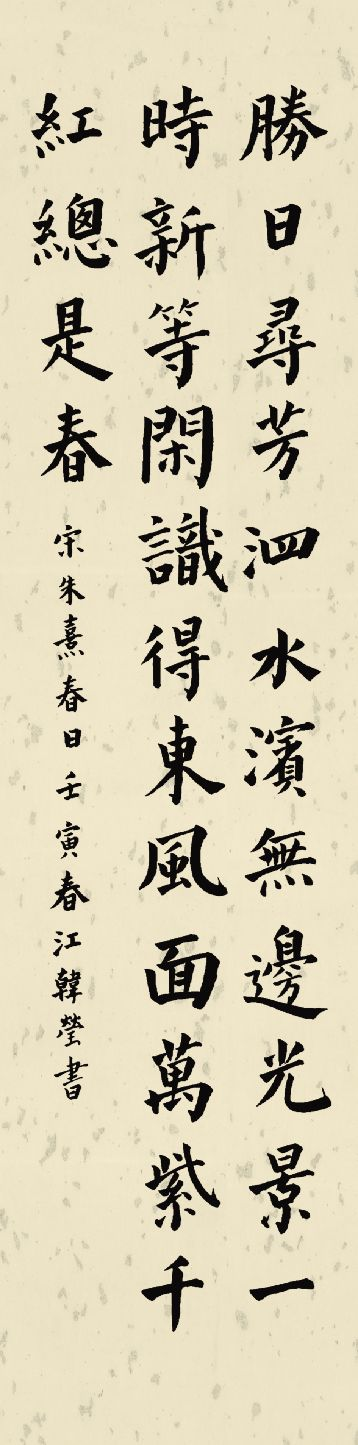 勝日尋芳泗水濱無邊光景一
時新等閑識得東風面萬紫千
紅總是春
宋朱熹春日壬寅春江韓瑩書